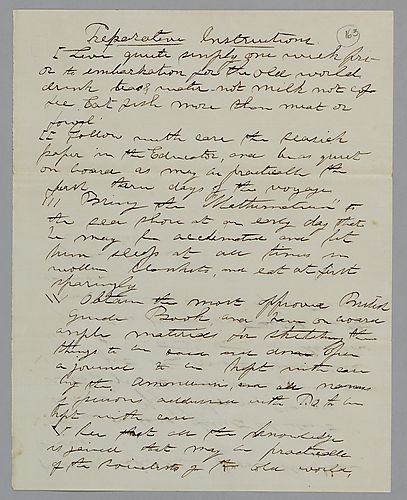 163
Preparative Instructions
I Live quite simply one week pri-
or to embarkation for the old world
drink tea & water not milk not cof-
fee Eat fish more than meat or
fowl.
II Follow with care the Seasick
paper in the Educator, and be as quiet
on board as may be practicable the
first three days of the voyage
III Bring the "Mathematician" to
the sea shore at an early day that
he may be acclimated and let
him sleep at all times in
woollen blankets, and eat at first
sparingly
Obtain the most approved British
Guide Book and have on board
ample materials for sketching the
things to be said and done upon
a journal to be kept with care
by the and all names
persons addressed with to be
kept with care
V. See that all the knowledge
is gained that may be practicable
of the scientists of the old world,